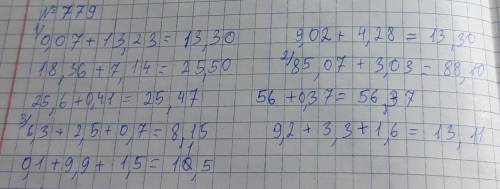 №779
1) 0,07 + 13,23 = 13,30
9,02 + 4,28 = 13,30
18,36 + 7,14 = 25,50
2) 85,07 + 3,03 = 88,10
25,6 + 0,41 = 25,47
56 + 0,37 = 56,37
3) 6,3 + 2,5 + 0,7 = 8,15
9,2 + 3,3 + 1,6 = 13,11
0,1 + 9,9 + 1,5 = 10,5